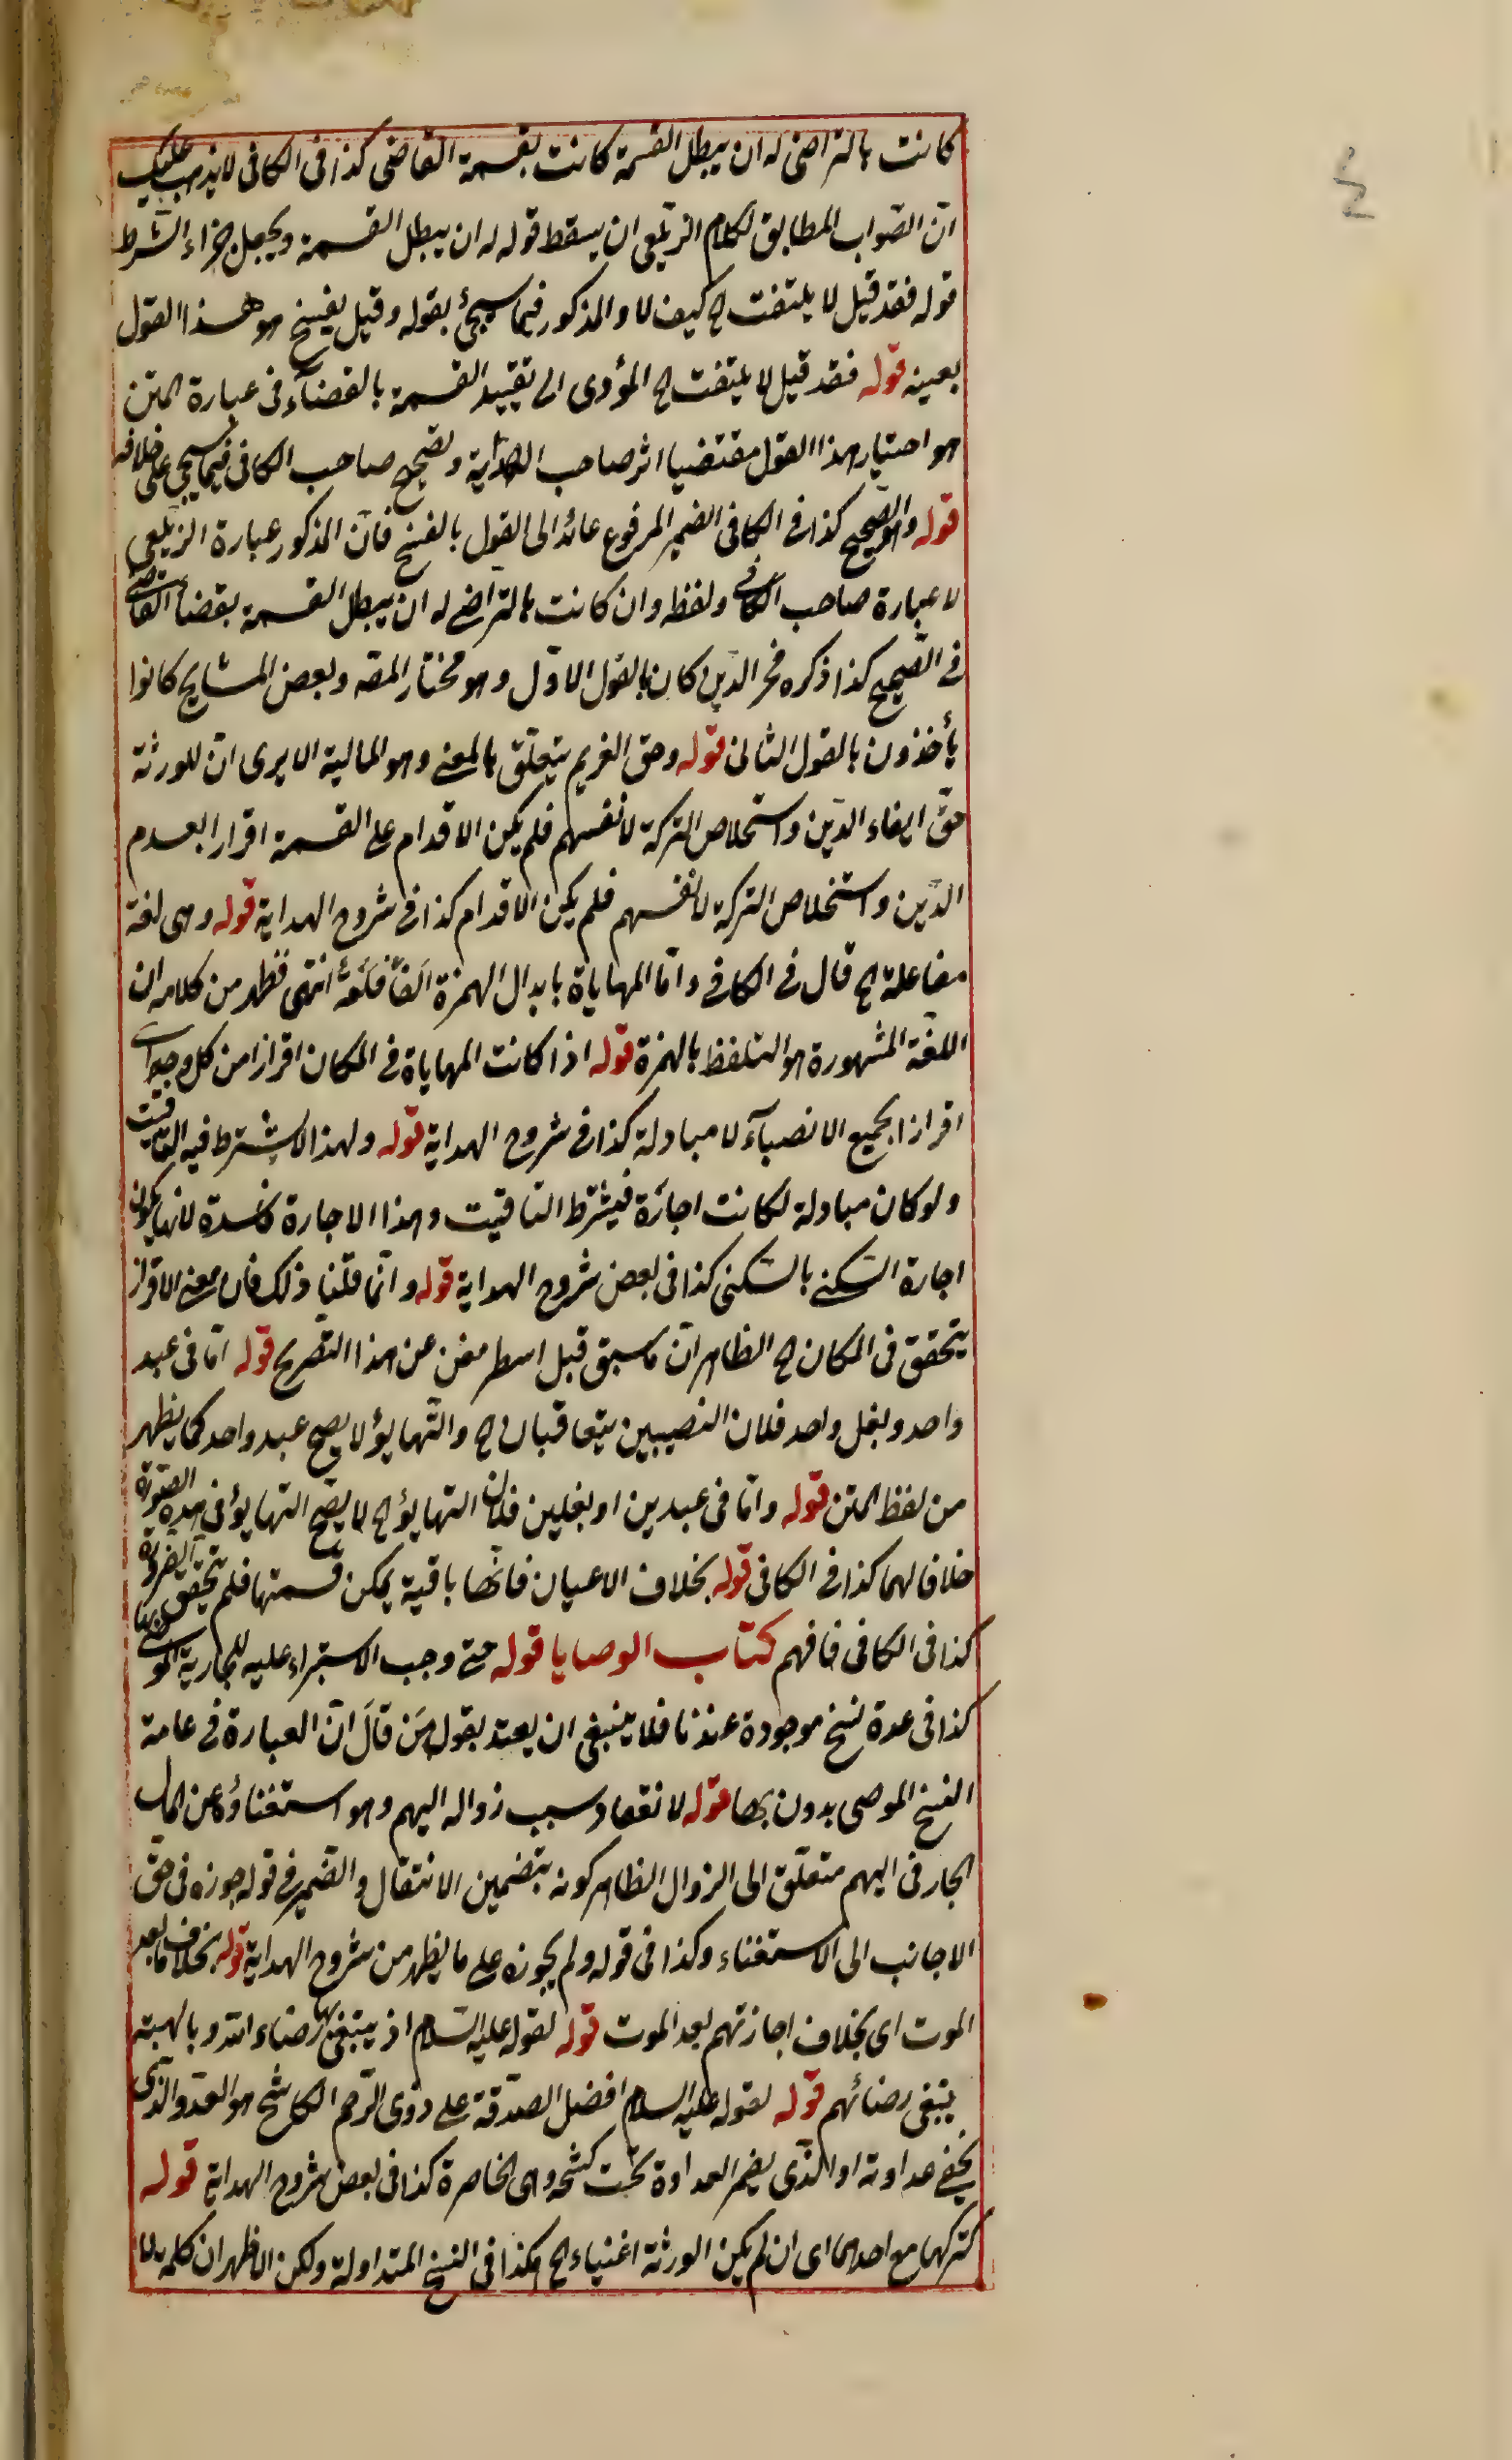 كانت بالتراضى له ان يبطل القسمة كانت بقسمة القاضى كذا فى الكافى لا يذهب عليك
انّ الصّواب المطابق لكلام الزيلعى ان يسقط قوله له ان يبطل القسمة ويجعل جزاء الشّرط
قوله فقد قيل لا يلتفت الخ كيف لا والمذكور فيما سيجئ بقوله وقيل يفسخ هو هذا القول
بعينه قوله فقد قيل لا يلتفت الخ المؤدى الى تقييد القسمة بالقضاء فى عبارة المتن
هو اختيار هذا القول مقتضيا اثر صاحب الهداية وتصحيح صاحب الكافى فيما سيجى على خلافه
قوله وهو الصّحيح كذا فى الكافى الضمير المرفوع عائد الى القول بالفسخ فانّ المذكور عبارة الزيلعى
لا عبارة صاحب الكافى ولفظه وان كانت بالتراضى له ان يبطل القسمة بقضاء القاضى
فى الصّحيح كذا ذكره فخر الدّين كان بالقول الاوّل وهو مختار المصّه وبعض المشايخ كانوا
يأخذون بالقول الثانى قوله وحق الغريم يتعلّق بالمعنى وهو المالية الا يرى انّ للورثة
حقّ ايفاء الدّين واستخلاص التركة لانفسهم فلم يكن الاقدام على القسمة اقرارا بعدم
الدّين واستخلاص التركة لانفسهم فلم يكن الاقدام كذا فى شروح الهداية قوله وهى لغة
مفاعلة الخ قال فى الكافى وامّا المهاياة بابدال الهمزة الفًا فلغةٌ انتهى فظهر من كلامه ان
اللغة المشهورة هو التلفظ بالهمزة قوله اذا كانت المهاياة فى المكان افرازا من كل وجه اى
افرازا لجميع الانصباء لا مبادلة كذا فى شروح الهداية قوله ولهذا لا يشترط فيه التاقيت
ولو كان مبادلة لكانت اجارة فيشترط التاقيت وهذا الاجارة فاسدة لانها يكون
اجارة السّكنى بالسّكنى كذا فى بعض شروح الهداية قوله وانما قلنا ذلك فان معنى الافراز
يتحقق فى المكان الخ الظاهر انّ ما سبق قبل اسطر مغن عن هذا التصريح قوله امّا فى عبد
واحد وبغل واحد فلان النصيبين يتعاقبان الخ والتّهايؤ لا يصح عبد واحد كما يظهر
من لفظ المتن قوله وامّا فى عبدين او بغلين فلان التهايؤ الخ لا يصّح التهايؤ فى هذه الصّورة
خلافا لهما كذا فى الكافى قوله بخلاف الاعيان فانّها باقية يمكن قسمتها فلم يتحقق الضرورة
كذا فى الكافى فافهم كتاب الوصايا قوله حتى وجب الاستبراء عليه للجارية الموصى بها
كذا فى عدة نسخ موجودة عندنا فلا ينبغى ان يعتد بقول من قال انّ العبارة فى عامة
النسخ الموصى بدون بها قوله لانعقاد سبب زواله اليهم وهو استغناؤه عن المال
الجار فى اليهم متعلّق الى الزوال الظاهر كونه بتضمين الانتقال والضّمير فى قوله جوزه فى حقّ
الاجانب الى الاستغناء وكذا فى قوله ولم يجوزه على ما يظهر من شروح الهداية قوله بخلاف ما بعد
الموت اى بخلاف اجازتهم بعد الموت قوله لقوله عليه السّلام اذ يبتغى بها رضاء الله وبالهبة
يبتغى رضائهم قوله لقوله عليه السلام افضل الصّدقة على ذوى الرّحم الكاشح هو العدّو الذّى
يخفى عداوته او الذّى يضمر العداوة تحت كشحه وهى الخاصرة كذا فى بعض شروح الهداية قوله
كتركها مع احدهما اى ان لم يكن الورثة اغنياء الخ هكذا فى النسخ المتداولة ولكن الاظهر ان كلمة لا